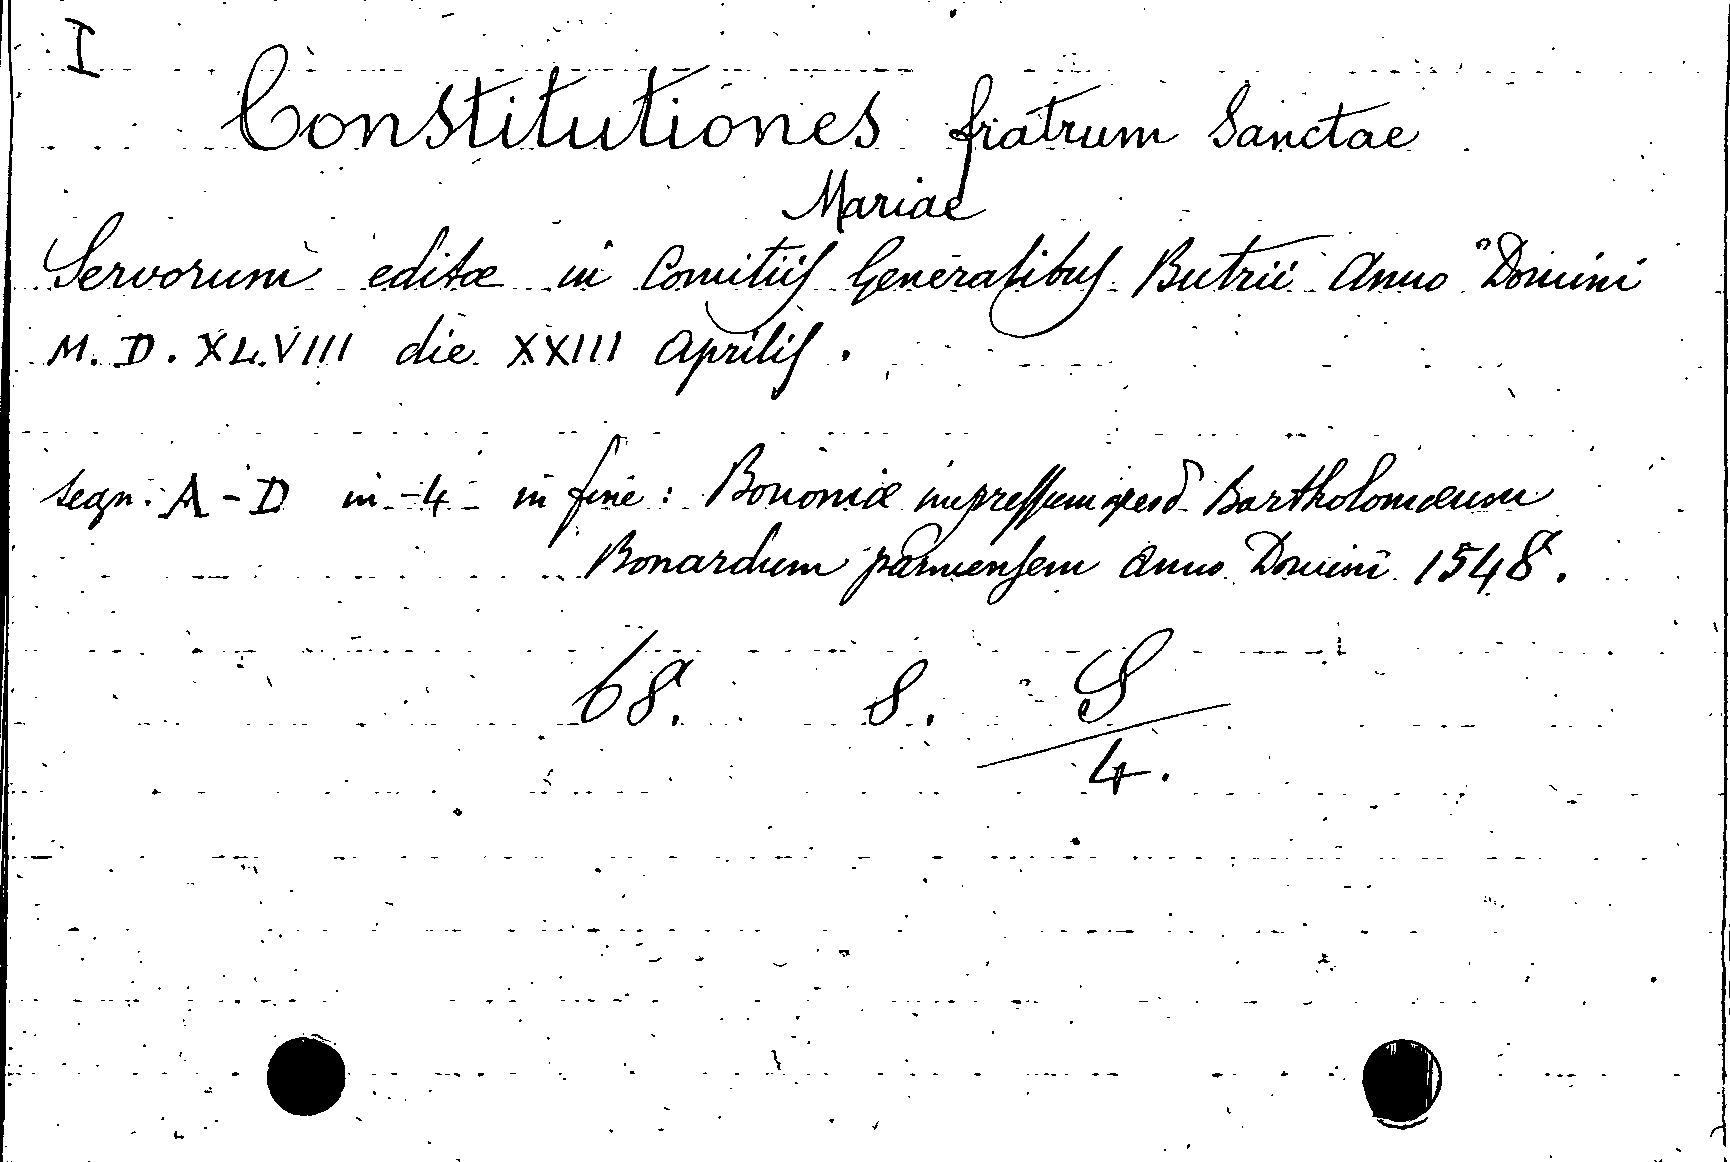 I
Constitutiones fratrum Sanctae
Mariae
Servorum editæ in Comitiis Generalibus Butrii Anno Domini
M. D. XLVIII die XXIII Aprilis.
segn. A-D in-4- in fine: Bononiæ impressum apud Bartholomæum
Bonardum parmensem Anno Domini 1548.
68. 8. S
4.